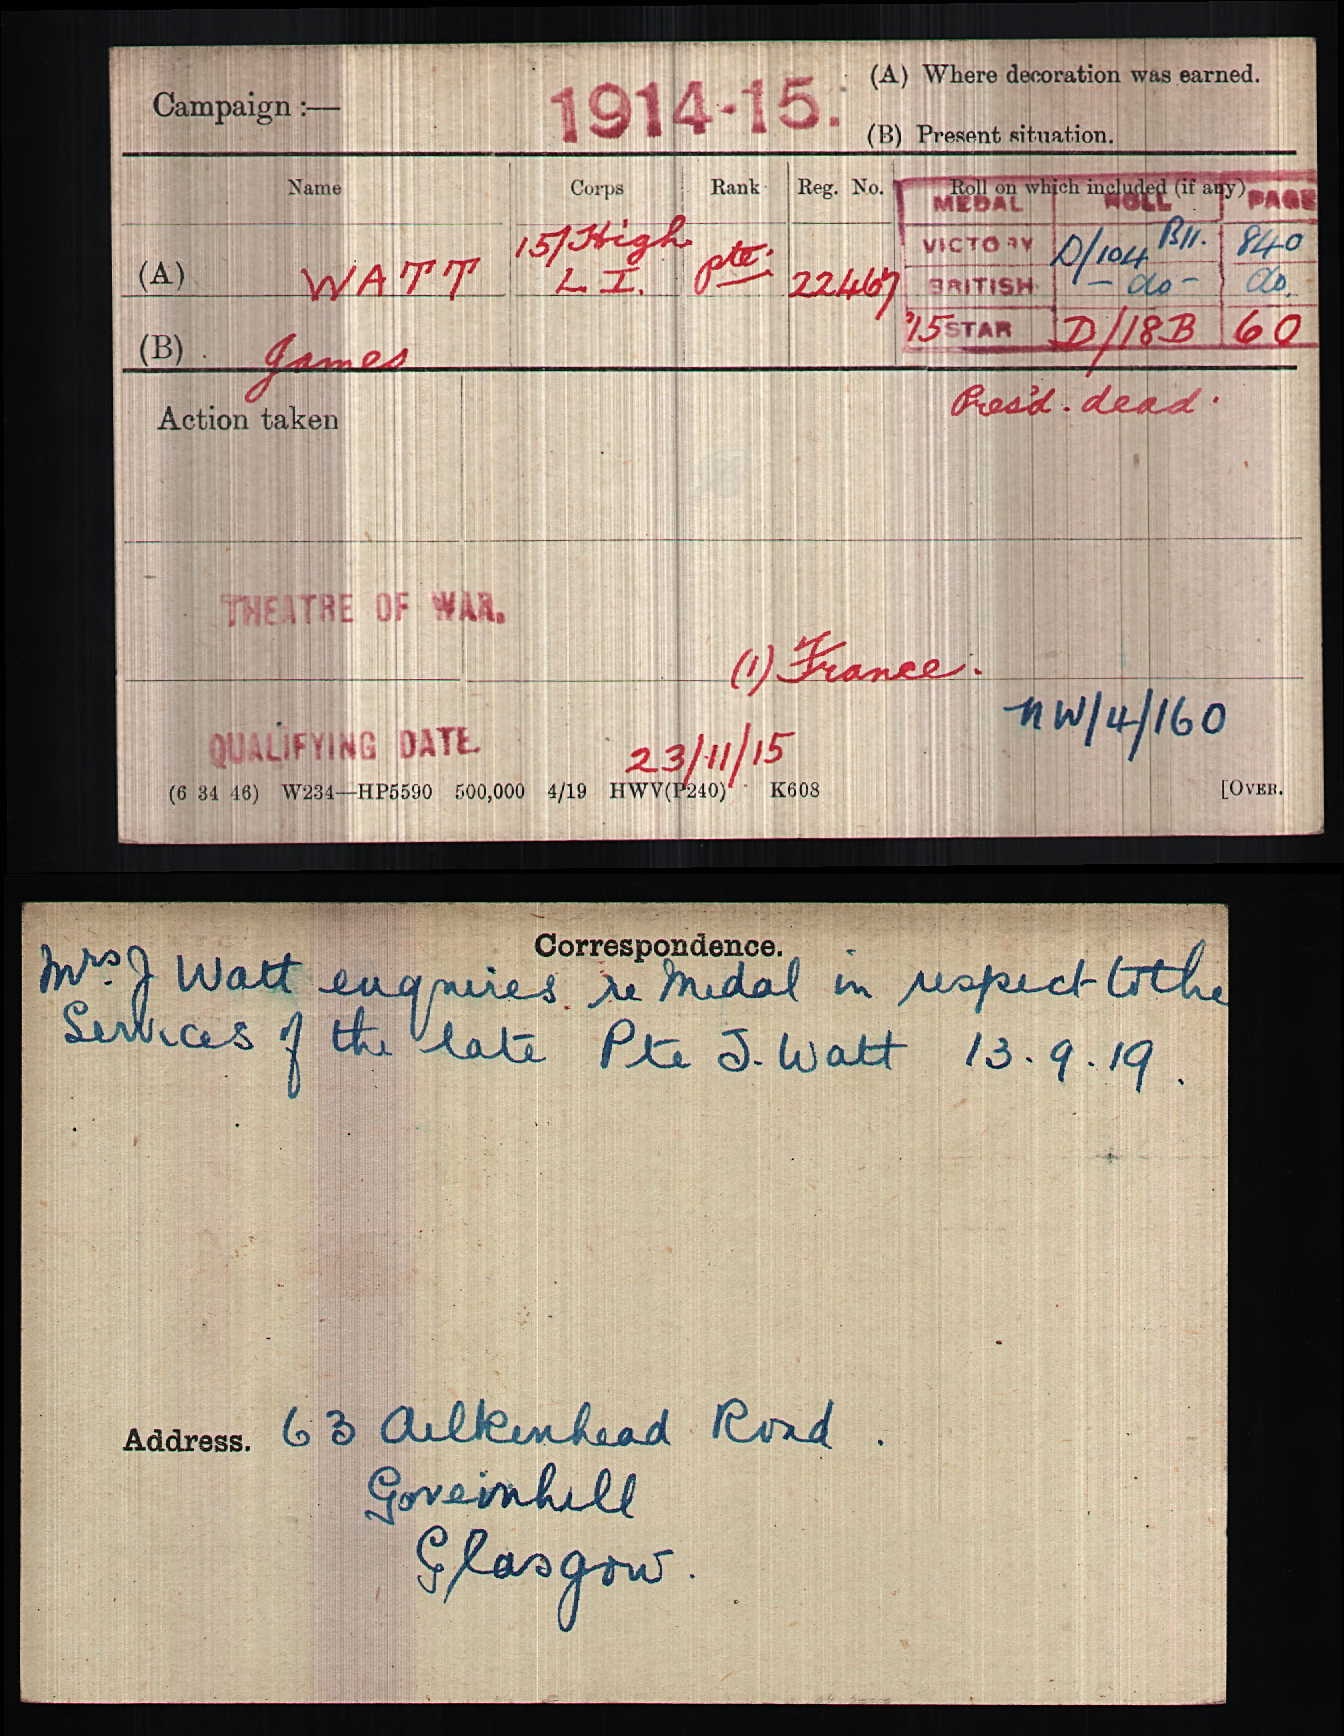 Campaign :—
1914-15.
(A) Where decoration was earned.
(B) Present situation.
Name Corps Rank Reg. No. Roll on which included (if any)
MEDAL ROLL PAGE
(A) WATT 15/High L. I. Pte. 22467
VICTORY D/104 B11. 840
BRITISH - do - do.
'15 STAR D/18B 60
(B) James
Action taken
Pres'd. dead.
THEATRE OF WAR.
(1) France.
NW/4/160
QUALIFYING DATE. 23/11/15
(6 34 46) W234—HP5590 500,000 4/19 HWV(P240) K608 [OVER.
Correspondence.
Mrs. J Watt enquires re Medal in respect to the
Services of the late Pte J. Watt 13.9.19.
Address. 63 Ailkenhead Road.
Goveinhill
Glasgow.